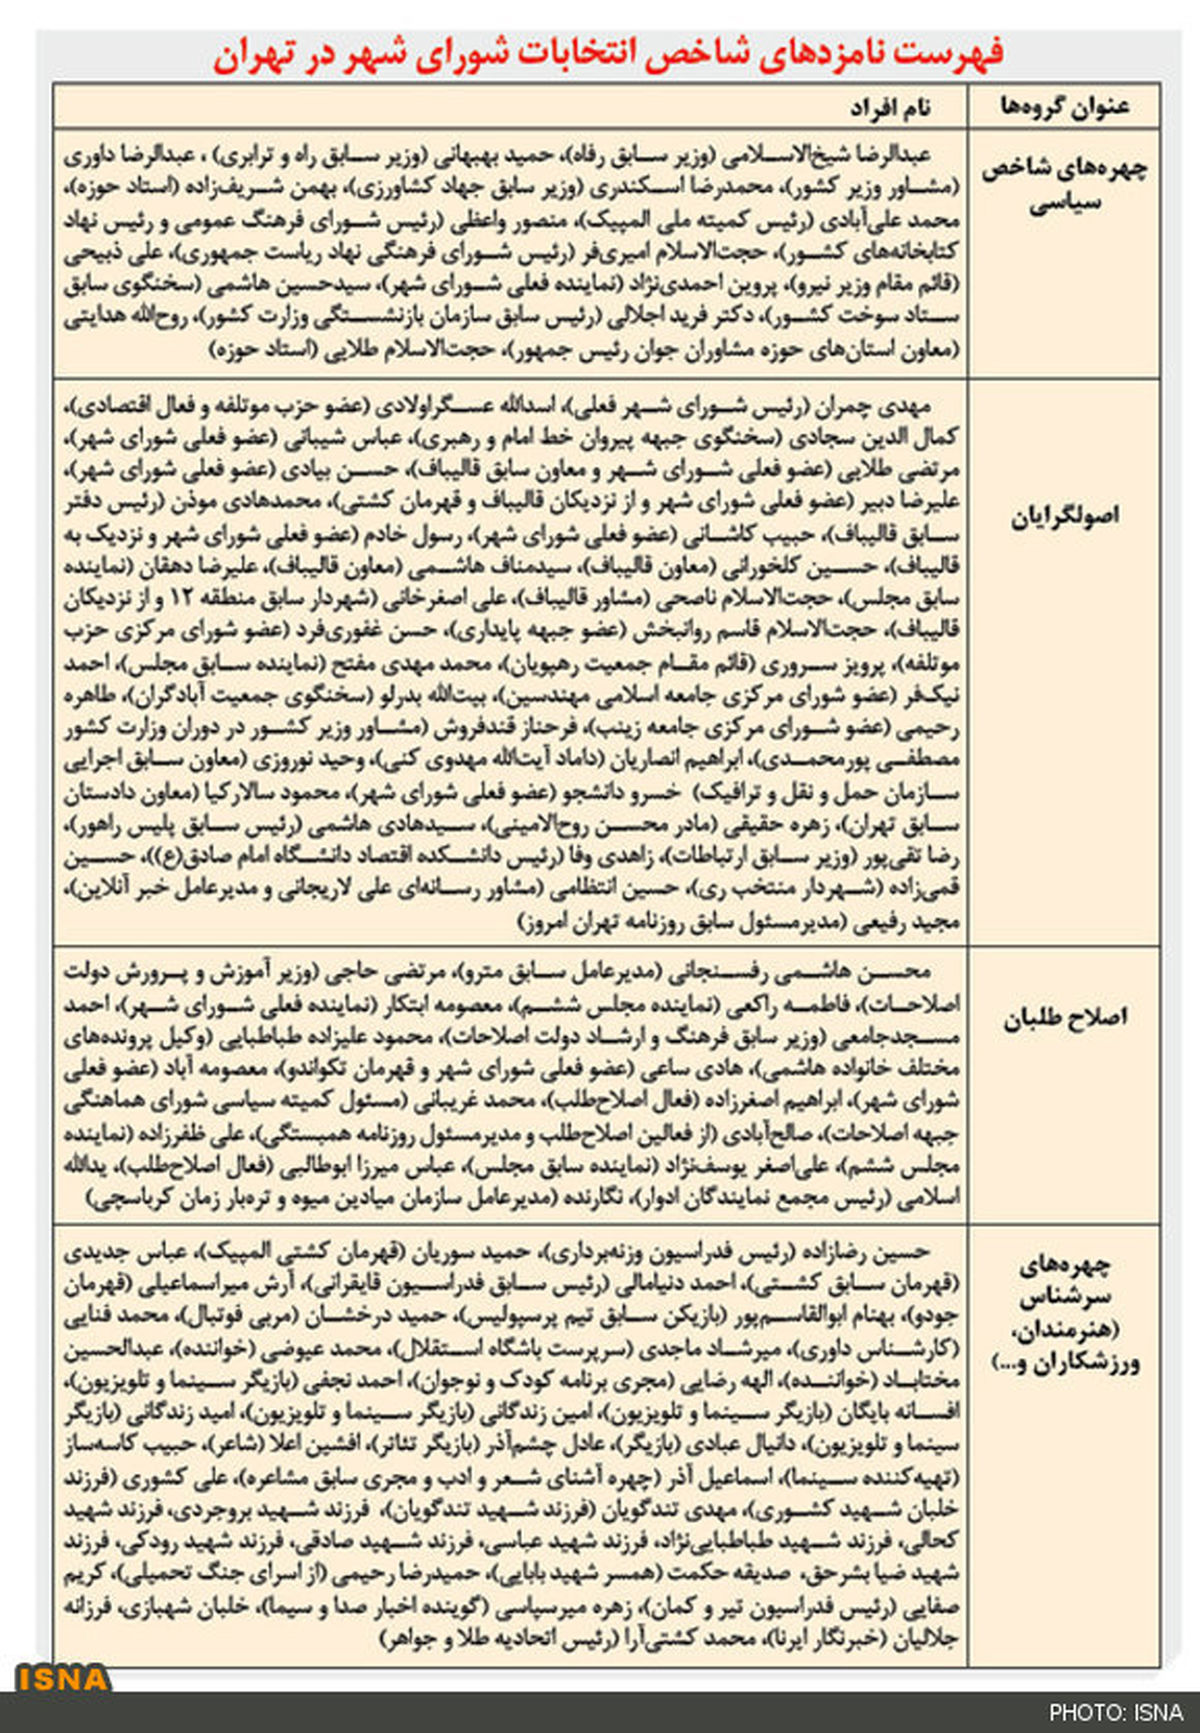 فهرست نامزدهای شاخص انتخابات شورای شهر در تهران
عنوان گروه‌ها
نام افراد
چهره‌های شاخص
سیاسی
عبدالرضا شیخ‌الاسلامی (وزیر سابق رفاه)، حمید بهبهانی (وزیر سابق راه و ترابری) ، عبدالرضا داوری
(مشاور وزیر کشور)، محمدرضا اسکندری (وزیر سابق جهاد کشاورزی)، بهمن شریف‌زاده (استاد حوزه)،
محمد علی‌آبادی (رئیس کمیته ملی المپیک)، منصور واعظی (رئیس شورای فرهنگ عمومی و رئیس نهاد
کتابخانه‌های کشور)، حجت‌الاسلام امیری‌فر (رئیس شورای فرهنگی نهاد ریاست جمهوری)، علی ذبیحی
(قائم مقام وزیر نیرو)، پروین احمدی‌نژاد (نماینده فعلی شورای شهر)، سیدحسین هاشمی (سخنگوی سابق
ستاد سوخت کشور)، دکتر فرید اجلالی (رئیس سابق سازمان بازنشستگی وزارت کشور)، روح‌الله هدایتی
(معاون استان‌های حوزه مشاوران جوان رئیس جمهور)، حجت‌الاسلام طلایی (استاد حوزه)
اصولگرایان
مهدی چمران (رئیس شورای شهر فعلی)، اسدالله عسگراولادی (عضو حزب موتلفه و فعال اقتصادی)،
کمال الدین سجادی (سخنگوی جبهه پیروان خط امام و رهبری)، عباس شیبانی (عضو فعلی شورای شهر)،
مرتضی طلایی (عضو فعلی شورای شهر و معاون سابق قالیباف)، حسن بیادی (عضو فعلی شورای شهر)،
علیرضا دبیر (عضو فعلی شورای شهر و از نزدیکان قالیباف و قهرمان کشتی)، محمدهادی موذن (رئیس دفتر
سابق قالیباف)، حبیب کاشانی (عضو فعلی شورای شهر)، رسول خادم (عضو فعلی شورای شهر و نزدیک به
قالیباف)، حسین کلخورانی (معاون قالیباف)، سیدمناف هاشمی (معاون قالیباف)، علیرضا دهقان (نماینده
سابق مجلس)، حجت‌الاسلام ناصحی (مشاور قالیباف)، علی اصغرخانی (شهردار سابق منطقه ۱۲ و از نزدیکان
قالیباف)، حجت‌الاسلام قاسم روانبخش (عضو جبهه پایداری)، حسن غفوری‌فرد (عضو شورای مرکزی حزب
موتلفه)، پرویز سروری (قائم مقام جمعیت رهپویان)، محمد مهدی مفتح (نماینده سابق مجلس)، احمد
نیک‌فر (عضو شورای مرکزی جامعه اسلامی مهندسین)، بیت‌الله بدرلو (سخنگوی جمعیت آبادگران)، طاهره
رحیمی (عضو شورای مرکزی جامعه زینب)، فرحناز قندفروش (مشاور وزیر کشور در دوران وزارت کشور
مصطفی پورمحمدی)، ابراهیم انصاریان (داماد آیت‌الله مهدوی کنی)، وحید نوروزی (معاون سابق اجرایی
سازمان حمل و نقل و ترافیک) خسرو دانشجو (عضو فعلی شورای شهر)، محمود سالارکیا (معاون دادستان
سابق تهران)، زهره حقیقی (مادر محسن روح‌الامینی)، سیدهادی هاشمی (رئیس سابق پلیس راهور)،
رضا تقی‌پور (وزیر سابق ارتباطات)، زاهدی وفا (رئیس دانشکده اقتصاد دانشگاه امام صادق(ع))، حسین
قمی‌زاده (شهردار منتخب ری)، حسین انتظامی (مشاور رسانه‌ای علی لاریجانی و مدیرعامل خبر آنلاین)،
مجید رفیعی (مدیرمسئول سابق روزنامه تهران امروز)
اصلاح طلبان
محسن هاشمی رفسنجانی (مدیرعامل سابق مترو)، مرتضی حاجی (وزیر آموزش و پرورش دولت
اصلاحات)، فاطمه راکعی (نماینده مجلس ششم)، معصومه ابتکار (نماینده فعلی شورای شهر)، احمد
مسجدجامعی (وزیر سابق فرهنگ و ارشاد دولت اصلاحات)، محمود علیزاده طباطبایی (وکیل پرونده‌های
مختلف خانواده هاشمی)، هادی ساعی (عضو فعلی شورای شهر و قهرمان تکواندو)، معصومه آباد (عضو فعلی
شورای شهر)، ابراهیم اصغرزاده (فعال اصلاح‌طلب)، محمد غریبانی (مسئول کمیته سیاسی شورای هماهنگی
جبهه اصلاحات)، صالح‌آبادی (از فعالین اصلاح‌طلب و مدیرمسئول روزنامه همبستگی)، علی ظفرزاده (نماینده
مجلس ششم)، علی‌اصغر یوسف‌نژاد (نماینده سابق مجلس)، عباس میرزا ابوطالبی (فعال اصلاح‌طلب)، یدالله
اسلامی (رئیس مجمع نمایندگان ادوار)، نگارنده (مدیرعامل سازمان میادین میوه و تره‌بار زمان کرباسچی)
چهره‌های
سرشناس
(هنرمندان،
ورزشکاران و...)
حسین رضازاده (رئیس فدراسیون وزنه‌برداری)، حمید سوریان (قهرمان کشتی المپیک)، عباس جدیدی
(قهرمان سابق کشتی)، احمد دنیامالی (رئیس سابق فدراسیون قایقرانی)، آرش میراسماعیلی (قهرمان
جودو)، بهنام ابوالقاسم‌پور (بازیکن سابق تیم پرسپولیس)، حمید درخشان (مربی فوتبال)، محمد فنایی
(کارشناس داوری)، میرشاد ماجدی (سرپرست باشگاه استقلال)، محمد عیوضی (خواننده)، عبدالحسین
مختاباد (خواننده)، الهه رضایی (مجری برنامه کودک و نوجوان)، احمد نجفی (بازیگر سینما و تلویزیون)،
افسانه بایگان (بازیگر سینما و تلویزیون)، امین زندگانی (بازیگر سینما و تلویزیون)، امید زندگانی (بازیگر
سینما و تلویزیون)، دانیال عبادی (بازیگر)، عادل چشم‌آذر (بازیگر تئاتر)، افشین اعلا (شاعر)، حبیب کاسه‌ساز
(تهیه‌کننده سینما)، اسماعیل آذر (چهره آشنای شعر و ادب و مجری سابق مشاعره)، علی کشوری (فرزند
خلبان شهید کشوری)، مهدی تندگویان (فرزند شهید تندگویان)، فرزند شهید بروجردی، فرزند شهید
کحالی، فرزند شهید طباطبایی‌نژاد، فرزند شهید عباسی، فرزند شهید صادقی، فرزند شهید رودکی، فرزند
شهید ضیا بشرحق، صدیقه حکمت (همسر شهید بابایی)، حمیدرضا رحیمی (از اسرای جنگ تحمیلی)، کریم
صفایی (رئیس فدراسیون تیر و کمان)، زهره میرسپاسی (گوینده اخبار صدا و سیما)، خلبان شهبازی، فرزانه
جلالیان (خبرنگار ایرنا)، محمد کشتی‌آرا (رئیس اتحادیه طلا و جواهر)
ISNA
PHOTO: ISNA